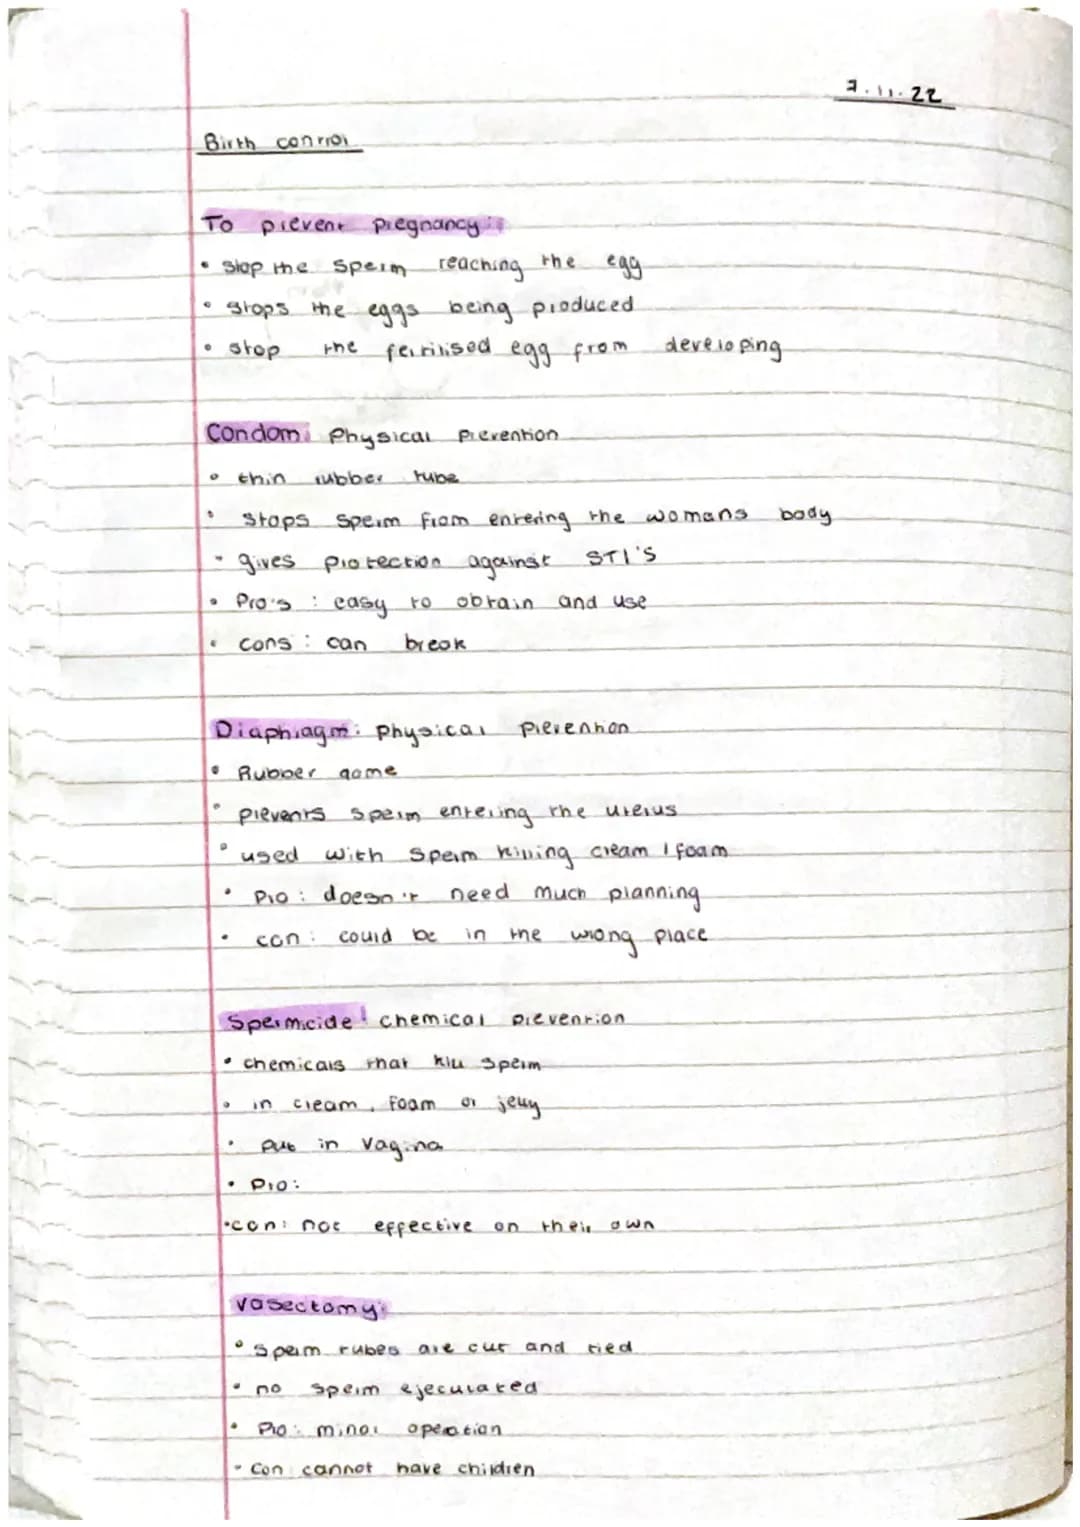 7.11.22
Birth control
To prevent pregnancy:
• stop the sperm reaching the egg
• stops the eggs being produced
• stop the fertilised egg from developing
Condom: Physical Prevention
• thin rubber tube
• stops sperm from entering the womans body
- gives protection against STI's
• Pro's : easy to obtain and use
• cons : can break
Diaphragm: physical prevention
• Rubber dome
• prevents sperm entering the uterus
• used with sperm killing cream / foam
• Pro : doesn't need much planning
• con : could be in the wrong place
Spermicide: chemical prevention
• chemicals that kill sperm
• in cream, foam or jelly
• put in vagina
• Pro:
•con: not effective on their own
vasectomy:
• sperm tubes are cut and tied
• no sperm ejeculated
• Pro: minor operation
- Con cannot have children